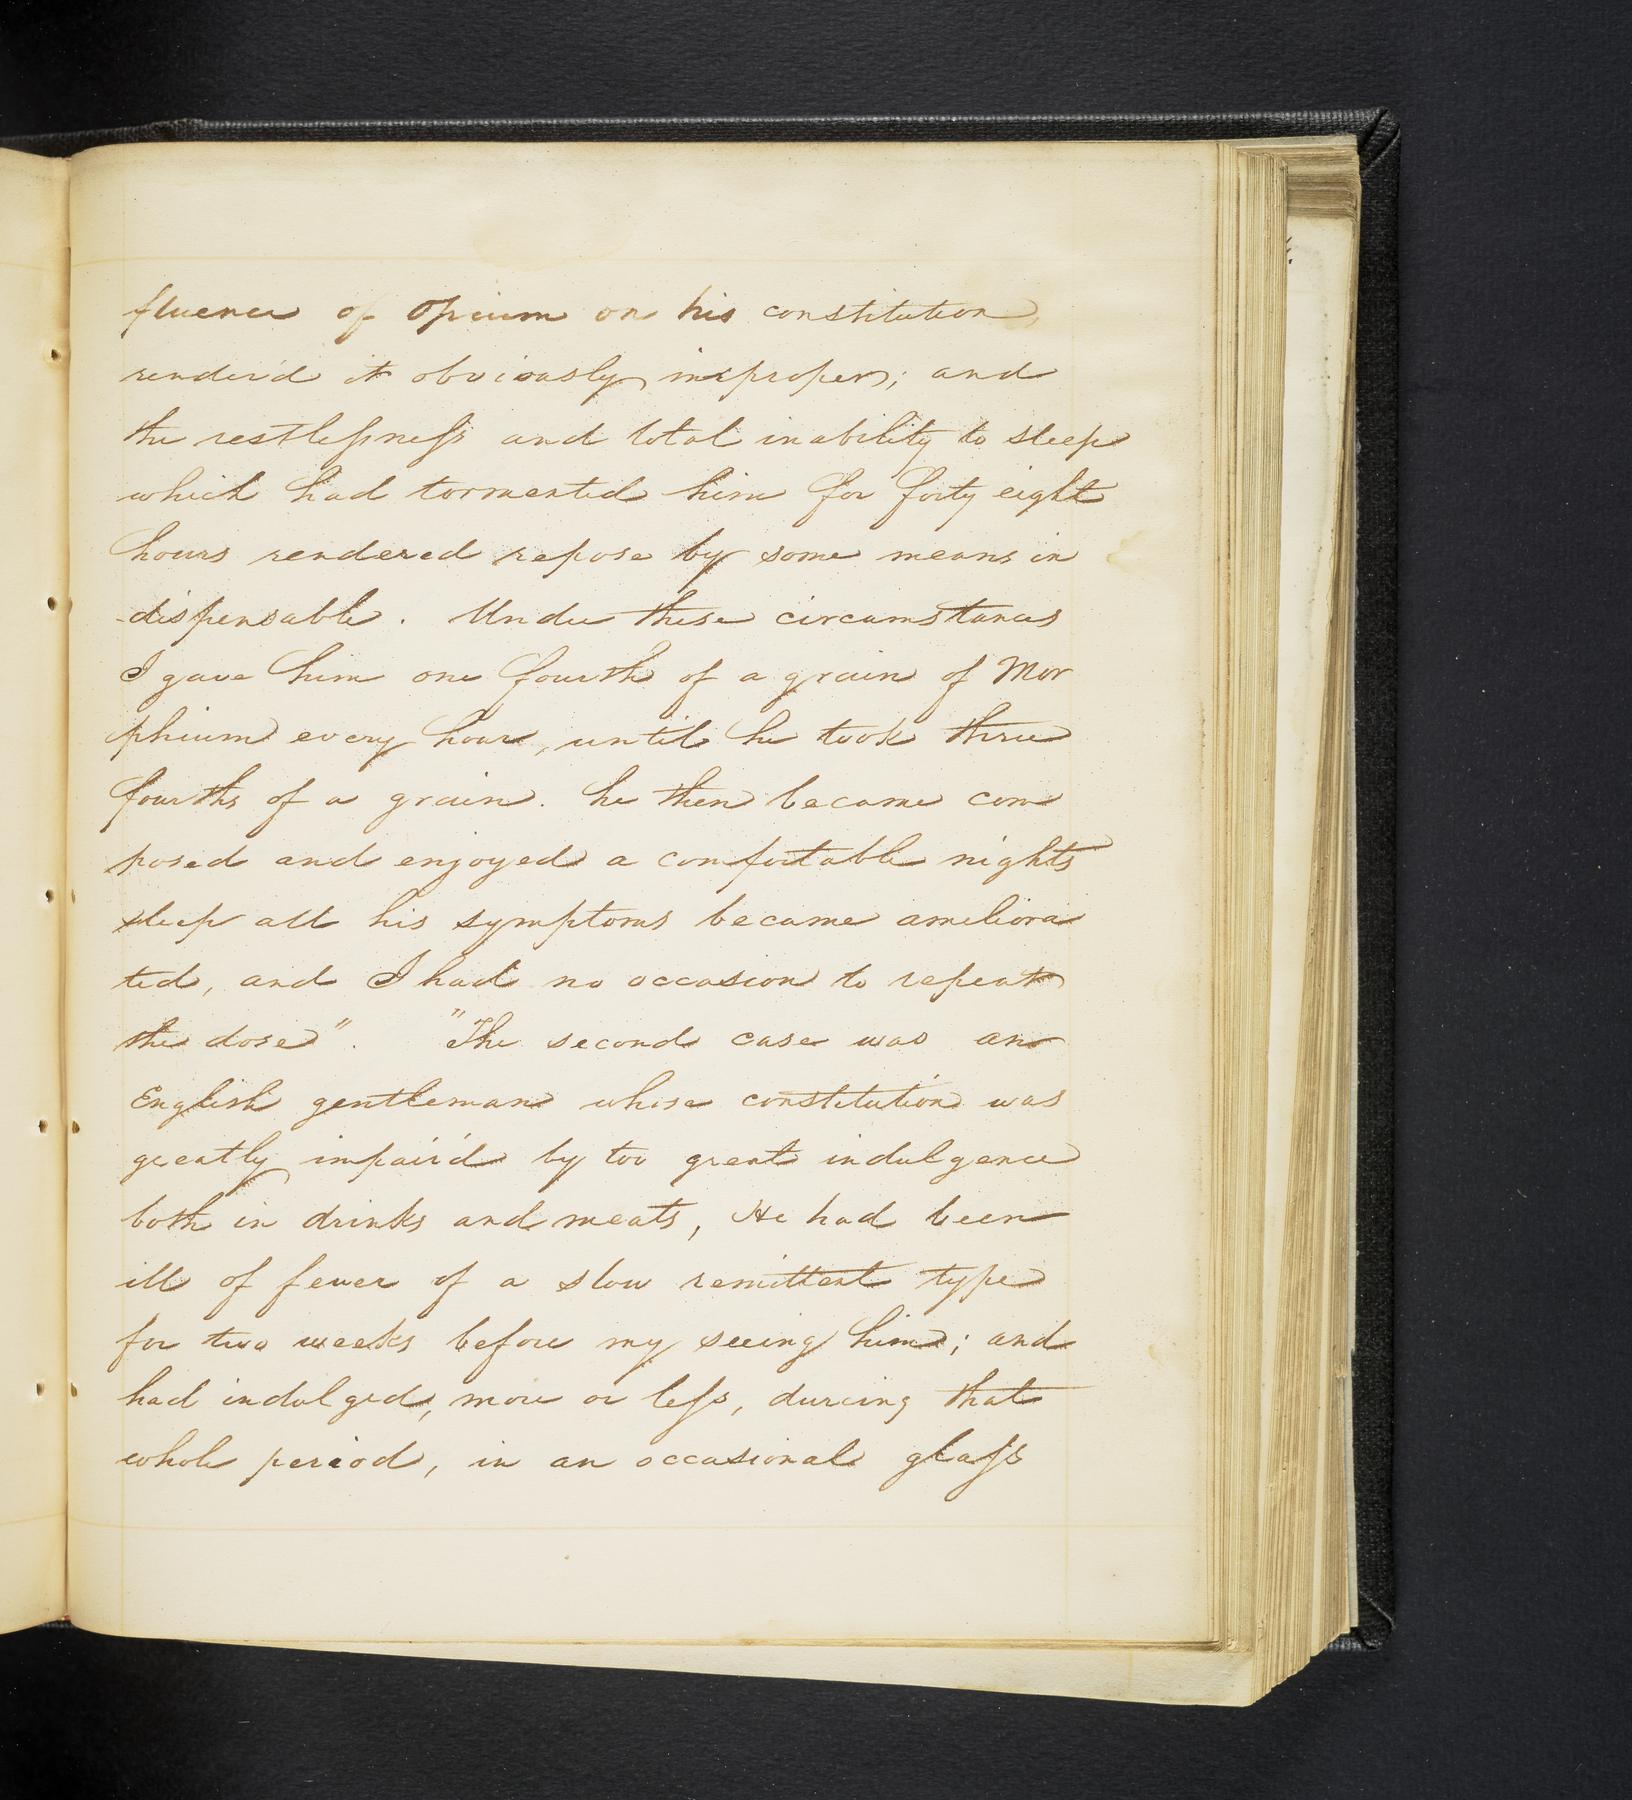 fluence of Opium on his constitution,
render'd it obviously improper; and
the restlessness and total inability to sleep
which had tormented him for forty eight
hours rendered repose by some means in
dispensable. Under these circumstances
I gave him one fourth of a grain of Mor
phium every hour, until he took three
fourths of a grain. he then became com
posed and enjoyed a comfortable nights
sleep all his symptoms became ameliora
ted, and I had no occasion to repeat
the dose". "The second case was an
English gentleman whose constitution was
greatly impair'd by too great indulgence
both in drinks and meats, He had been
ill of fever of a slow remittent type
for two weeks before my seeing him; and
had indulged, more or less, during that
whole period, in an occasional glass